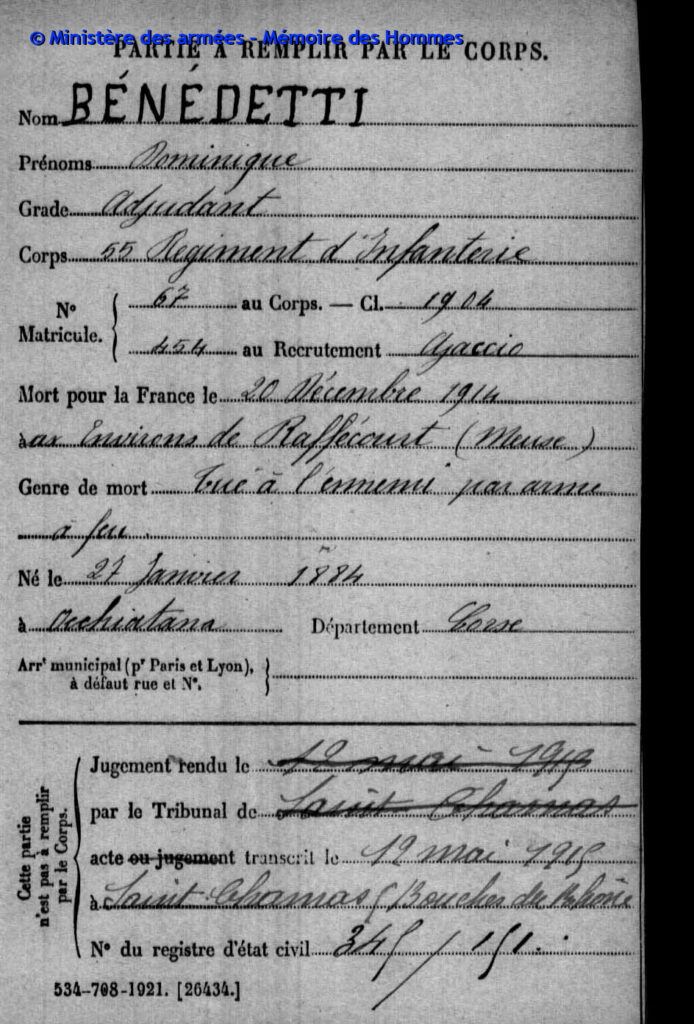 © Ministère des armées - Mémoire des Hommes
PARTIE À REMPLIR PAR LE CORPS.
Nom BÉNÉDETTI
Prénoms Dominique
Grade Adjudant
Corps 55 Régiment d'Infanterie
N° Matricule. 67 au Corps. — Cl. 1904
454 au Recrutement Ajaccio
Mort pour la France le 20 Décembre 1914
à ax Environs de Raffécourt (Meuse)
Genre de mort Tué à l'ennemi par arme
à feu.
Né le 27 Janvier 1884
à Occhiatana Département Corse
Arrt municipal (pr Paris et Lyon),
à défaut rue et N°.
Cette partie n'est pas à remplir par le Corps.
Jugement rendu le 12 mai 1915
par le Tribunal de Saint Chamas
acte ou jugement transcrit le 12 mai 1915
à Saint Chamas (Bouches du Rhône
N° du registre d'état civil 345/151.
534-708-1921. [26434.]